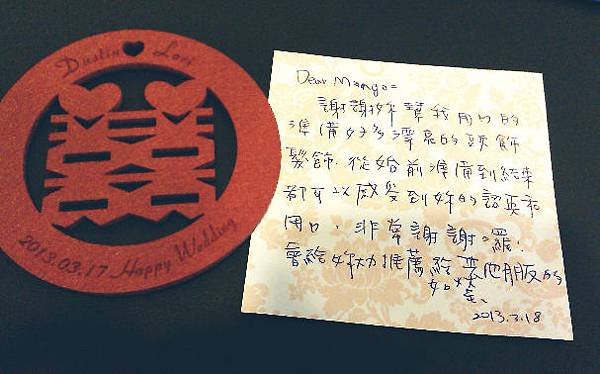 Dustin ♥ Lori
囍
2013.03.17 Happy Wedding
Dear Mango=
謝謝妳幫我用心的
準備好多漂亮的頭飾
髮飾. 從婚前準備到結束
都可以感受到妳的認真和
用心, 非常謝謝妳囉.
會給妳大力推薦給其他朋友的
2013.3.18